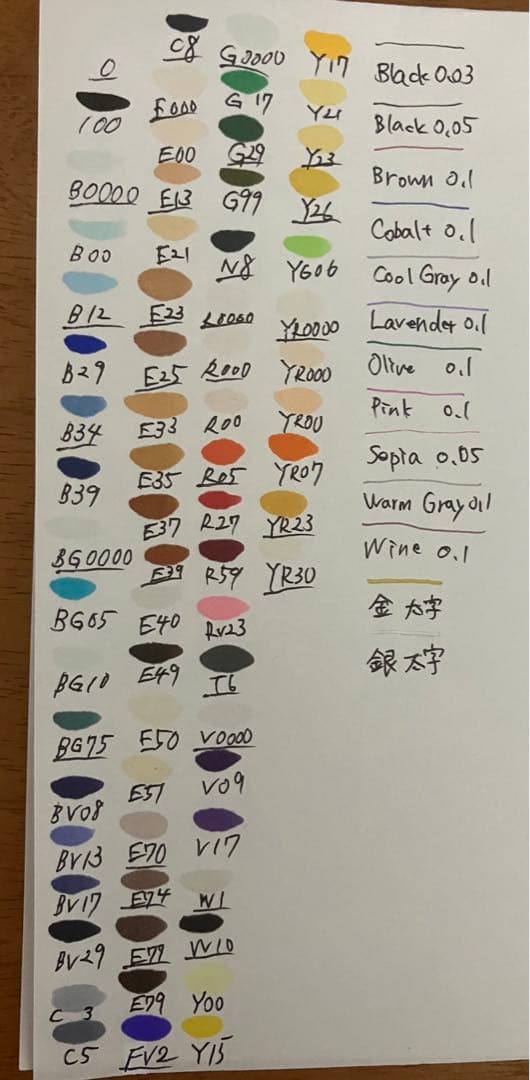 0
100
B0000
B00
B12
B29
B34
B39
BG0000
BG05
BG10
BG75
BV08
BV13
BV17
BV29
C 3
C5
C8
E000
E00
E13
E21
E23
E25
E33
E35
E37
E39
E40
E49
E50
E51
E70
E74
E77
E79
FV2
G0000
G17
G29
G99
N8
R0000
R000
R00
R05
R27
R59
RV23
T6
V0000
V09
V17
W1
W10
Y00
Y15
Y17
Y21
Y23
Y26
YG06
YR0000
YR000
YR00
YR07
YR23
YR30
Black 0.03
Black 0.05
Brown 0.1
Cobalt 0.1
Cool Gray 0.1
Lavender 0.1
Olive 0.1
Pink 0.1
Sepia 0.05
Warm Gray 0.1
Wine 0.1
金 太字
銀 太字